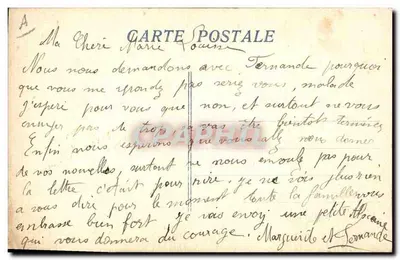 A
CARTE POSTALE
Ma Cheri Marie Louise
Nous nous demandons avec Fernande pourquoi
que vous me pas seriez vous malade
j'esperi pour vous que non, et surtout ne vous
pas de trop sa vas être bientôt terminée
Enfin nous esperons que vous nous donner
de vos nouvelles, surtout ne nous pas pour
la lettre c'etait pour rire. je ne vois plus rien
a vous dire pour le moment toute la famille vous
enbrasse bien fort je vais envoj une petite
qui vous donnera du courage. Marguerite et Fernande